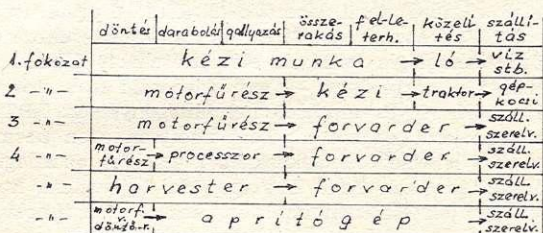 döntés darabolás gallyazás össze-rakás fel-le-terh. közelí-tés szállí-tás
1. fokozat kézi munka → ló → víz stb.
2 -"- motorfűrész → kézi → traktor → gép-kocsi
3 -"- motorfűrész → forvarder → száll. szerelv.
4 -"- motor-fűrész → processzor → forvarder → száll. szerelv.
-"- harvester → forvarder → száll. szerelv.
-"- motorf. v. döntő-r. → aprítógép → száll. szerelv.